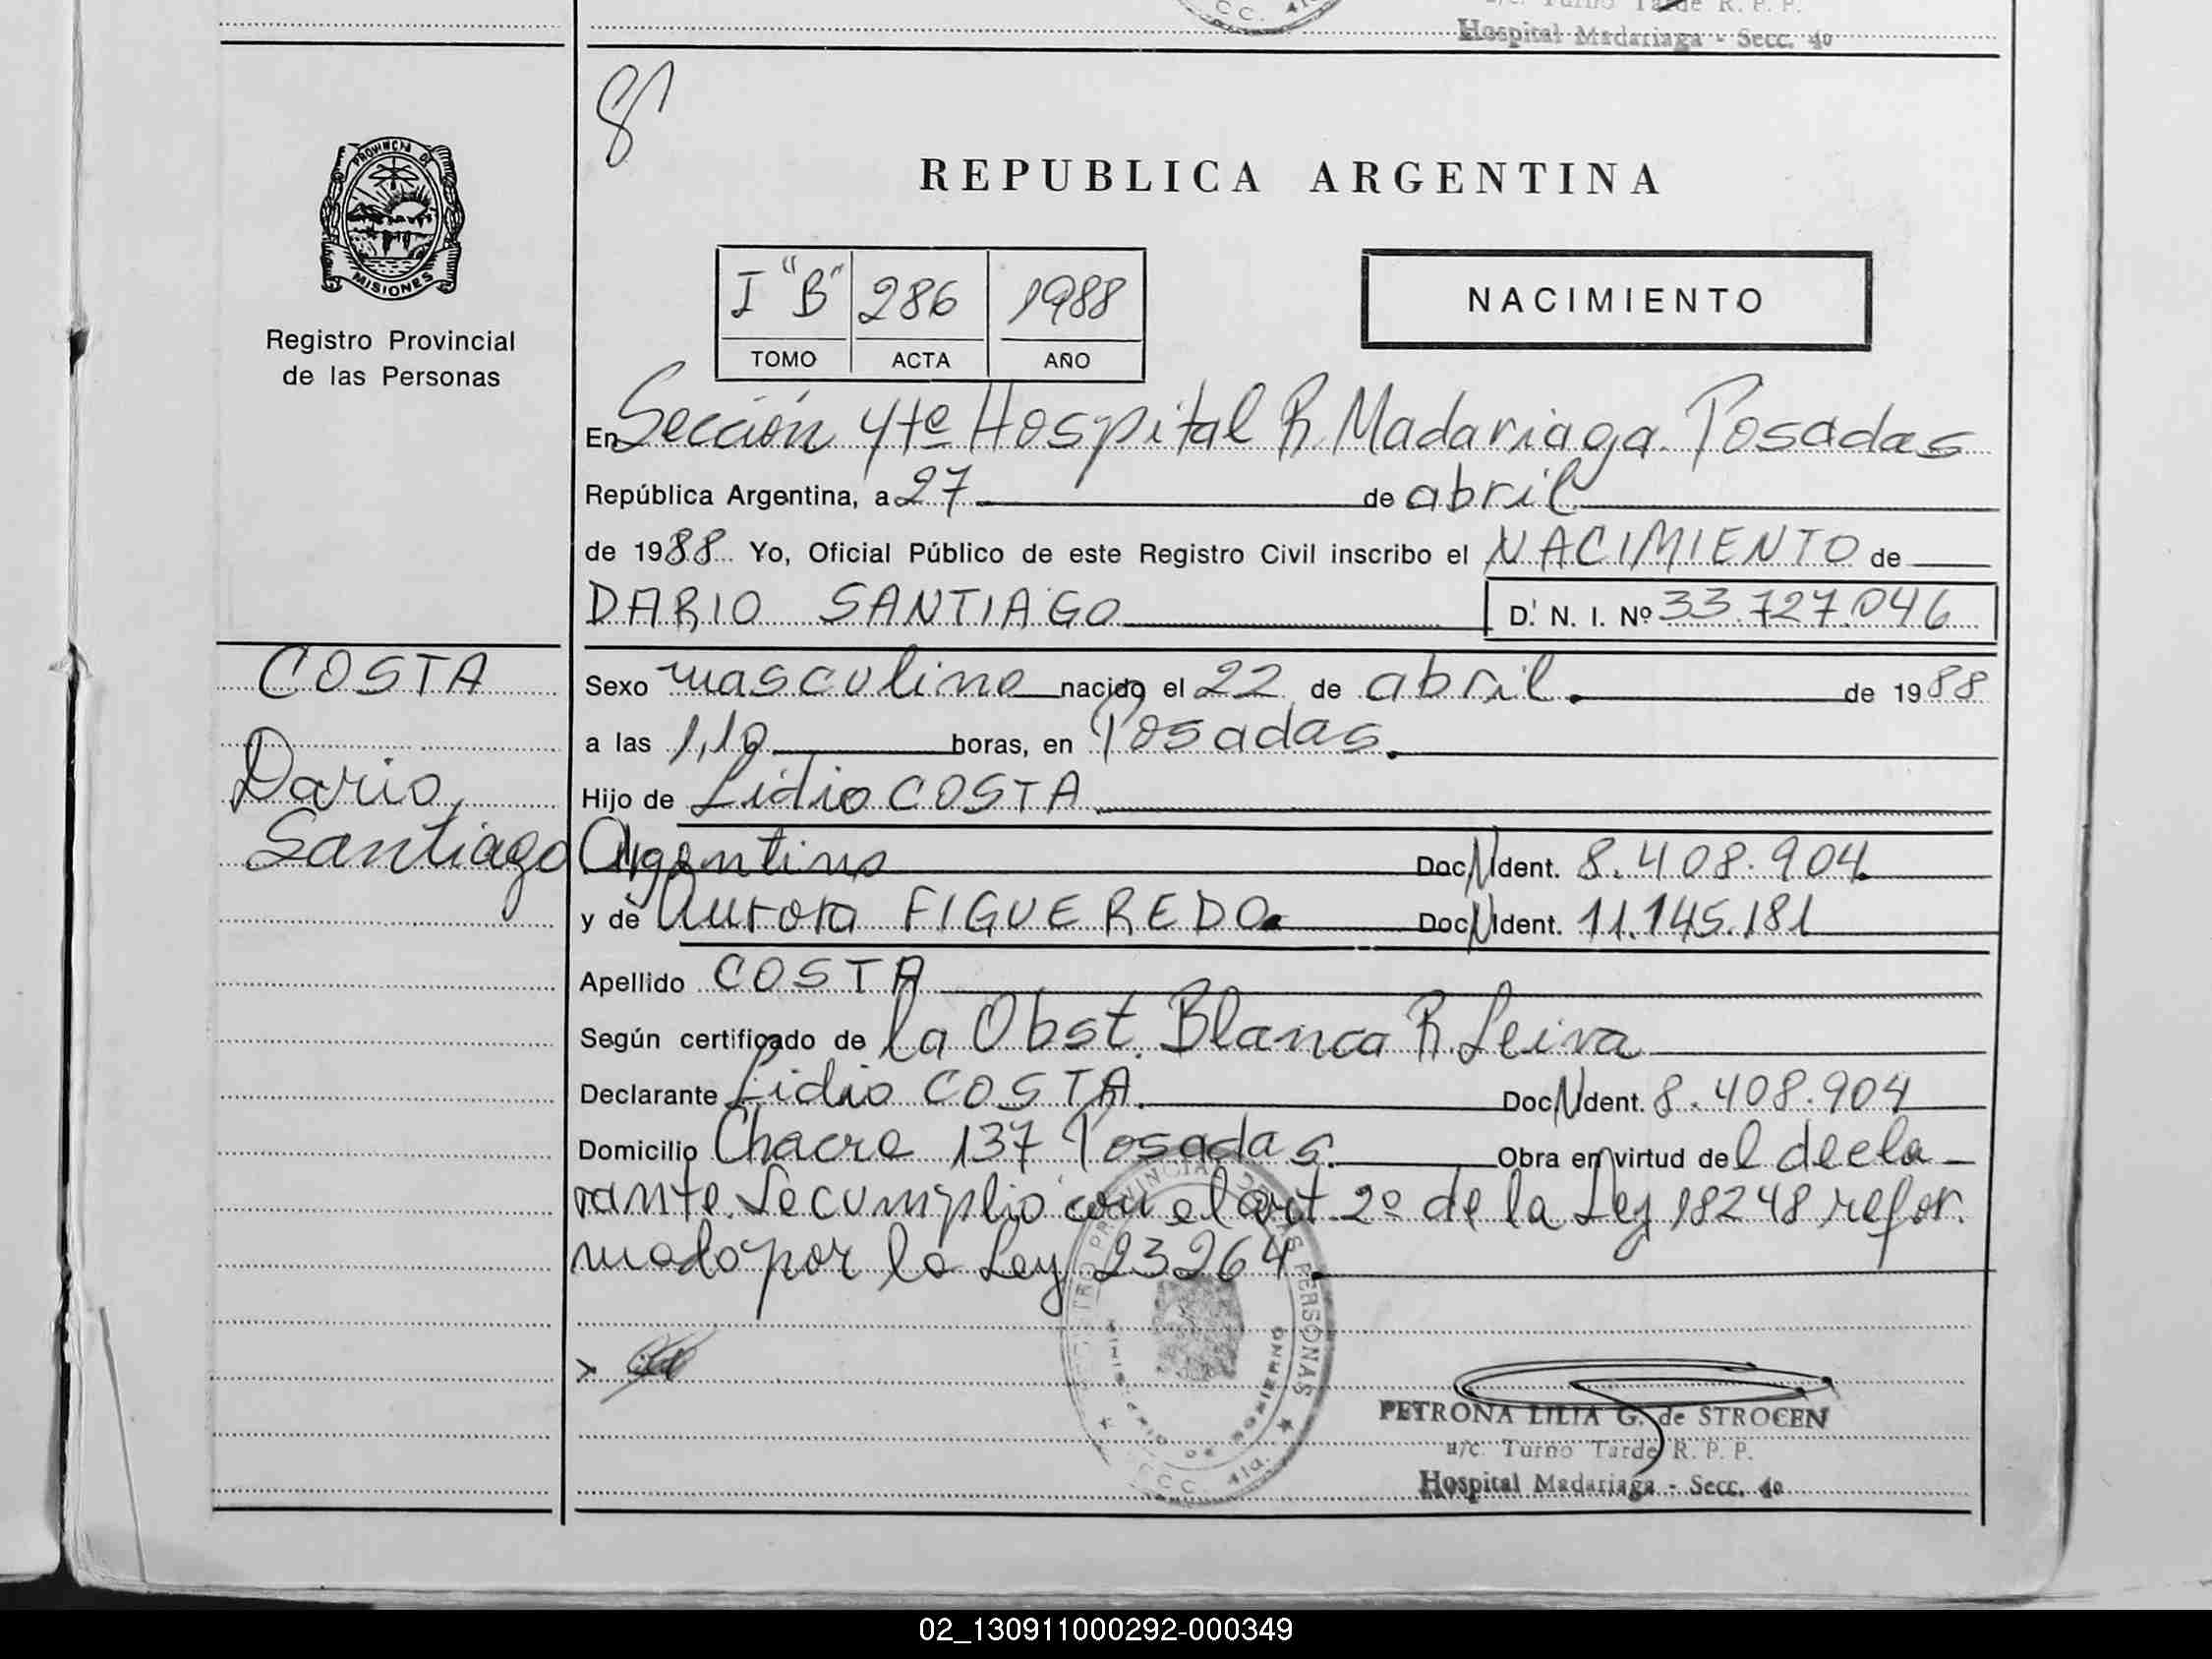 a/c. Turno Tarde R. P. P.
Hospital Madariaga - Secc. 4o
PROVINCIA DE
MISIONES
Registro Provincial
de las Personas
REPUBLICA ARGENTINA
I "B" 286 1988
TOMO ACTA AÑO
NACIMIENTO
En Sección 4ta Hospital R. Madariaga. Posadas
República Argentina, a 27 de abril
de 1988 Yo, Oficial Público de este Registro Civil inscribo el NACIMIENTO de
DARIO SANTIAGO D. N. I. Nº 33.727.046
COSTA
Dario,
Santiago
Sexo masculino nacido el 22 de abril. de 1988
a las 1,10 horas, en Posadas.
Hijo de Lidio COSTA
Argentino Doc N Ident. 8.408.904.
y de Aurora FIGUEREDO. Doc N Ident. 11.145.181
Apellido COSTA
Según certificado de la Obst. Blanca R. Leiva
Declarante Lidio COSTA. Doc N Ident. 8.408.904
Domicilio Chacra 137 Posadas. Obra en virtud del decla-
rante. Se cumplio con el art 2º de la Ley 18248 refor.
mado por la Ley 23264.
REGISTRO PROVINCIAL DE LAS PERSONAS
MINISTERIO DE GOBIERNO
SECC. 4ta.
PETRONA LILIA G. de STROCEN
a/c. Turno Tarde R. P. P.
Hospital Madariaga - Secc. 4o
02_130911000292-000349